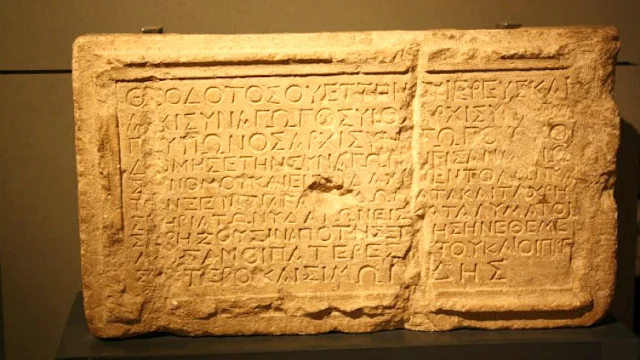 ΘΕΟΔΟΤΟΣ ΟΥΕΤΤΗΝΟΥ ΙΕΡΕΥΣ ΚΑΙ
ΑΡΧΙΣΥΝΑΓΩΓΟΣ ΥΙΟΣ ΑΡΧΙΣΥΝ
ΥΙΩΝΟΣ ΑΡΧΙΣΥΝΑΓΩΓΟΥ ΩΚΟ
ΔΟΜΗΣΕ ΤΗΝ ΣΥΝΑΓΩΓΗΝ ΕΙΣ
ΝΟΜΟΥ ΚΑΙ ΕΙΣ ΔΙΔΑΧΗΝ ΕΝΤΟΛΩΝ ΚΑΙ
ΤΟΝ ΞΕΝΩΝΑ ΚΑΙ ΔΩΜΑΤΑ ΚΑΙ ΤΑ ΧΡΗ
ΣΤΗΡΙΑ ΤΩΝ ΥΔΑΤΩΝ ΕΙΣ ΚΑΤΑΛΥΜΑ ΤΟΙ
Σ ΧΡΗΖΟΥΣΙΝ ΑΠΟ ΤΗΣ ΞΕΝΗΣ ΗΝ ΕΘΕΜΕ
ΣΑΝ ΟΙ ΠΑΤΕΡΕΣ ΑΥΤΟΥ ΚΑΙ ΟΙ ΠΡΕ
ΣΒΥΤΕΡΟΙ ΚΑΙ ΣΙΜΩΝΙΔΗΣ